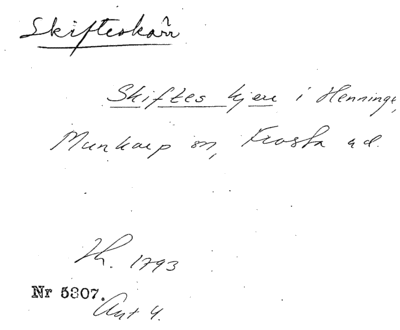 Skifteskärr
Skiftes kjerr i Henninge,
Munkarp sn, Frosta hd.
Th. 1793
Nr 5307.
Akt 4.